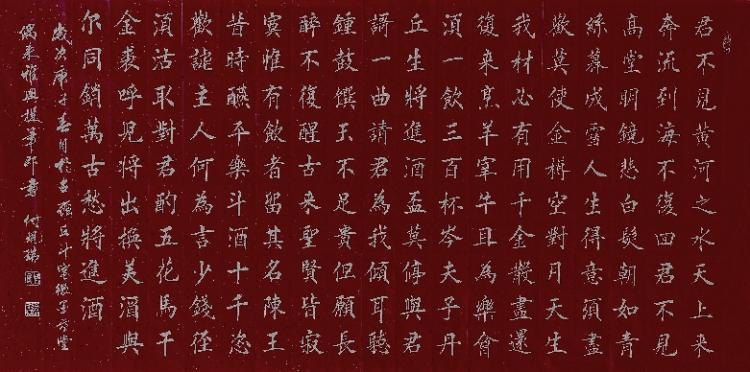 君不見黃河之水天上來
奔流到海不復回君不見
高堂明鏡悲白髮朝如青
絲暮成雪人生得意須盡
歡莫使金樽空對月天生
我材必有用千金散盡還
復來烹羊宰牛且為樂會
須一飲三百杯岑夫子丹
丘生將進酒盃莫停與君
謌一曲請君為我傾耳聽
鍾鼓饌玉不足貴但願長
醉不復醒古來聖賢皆寂
寞惟有飲者留其名陳王
昔時讌平樂斗酒十千恣
歡謔主人何為言少錢徑
須沽取對君酌五花馬千
金裘呼兒將出換美酒與
尔同銷萬古愁將進酒
歲次庚子春月於古頓丘斗室
偶來雅興援筆即書